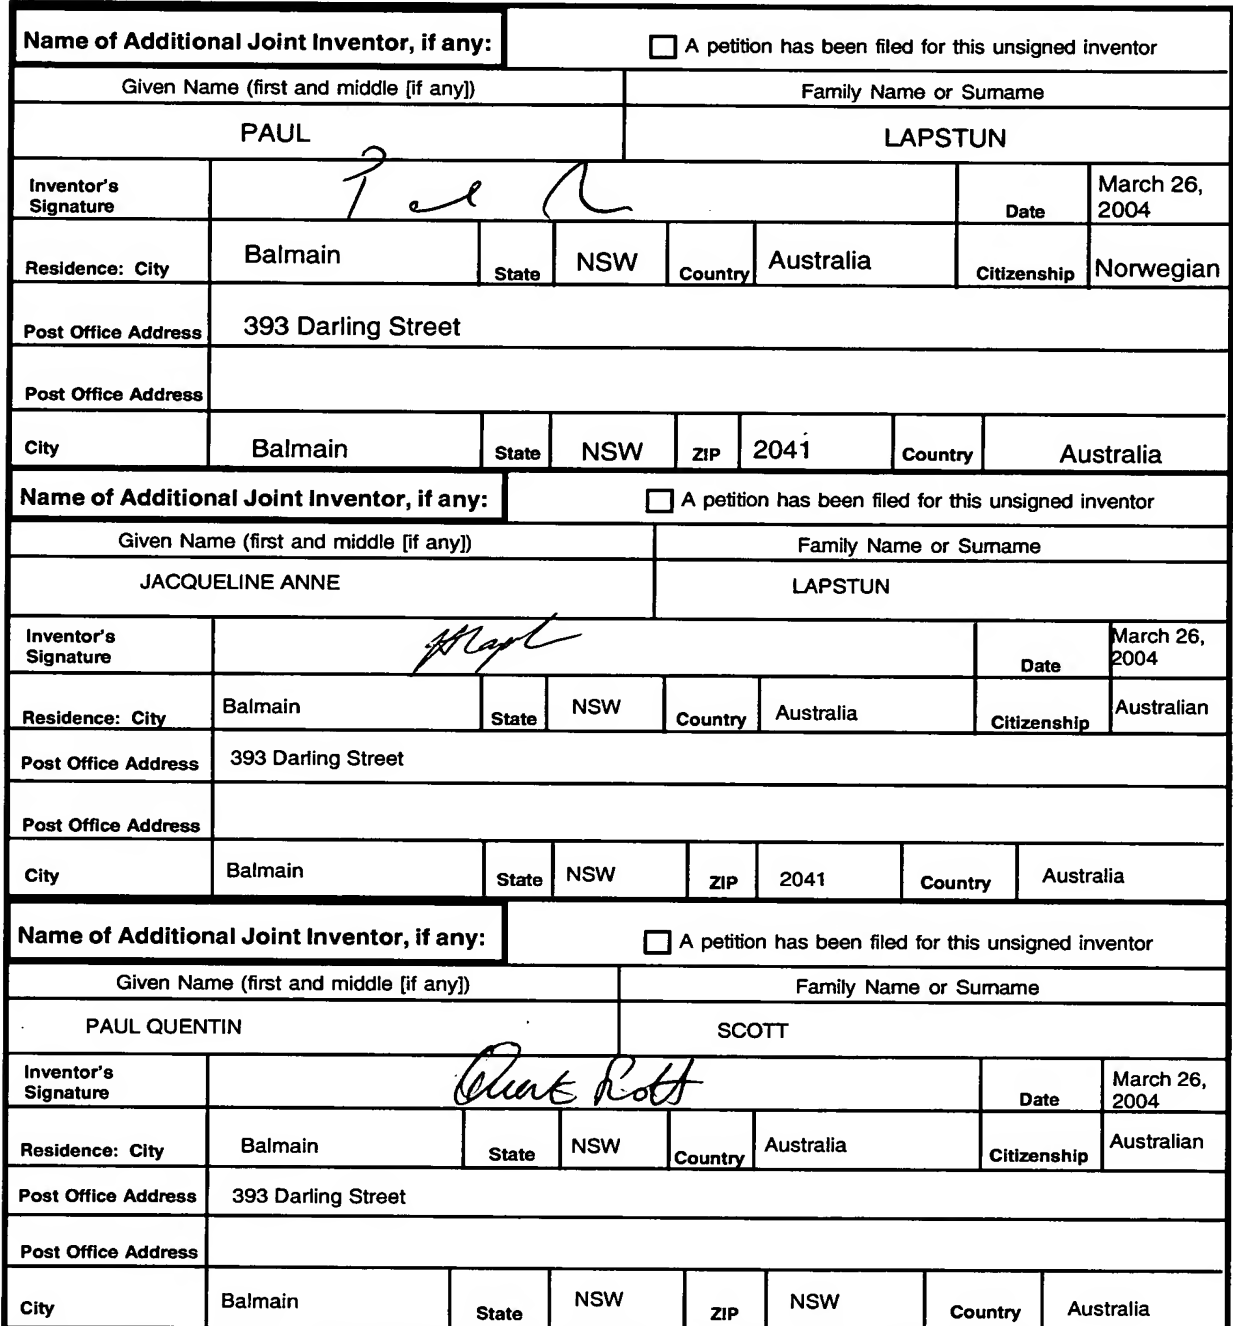 Name of Additional Joint Inventor, if any: A petition has been filed for this unsigned inventor
Given Name (first and middle [if any]) Family Name or Surname
PAUL LAPSTUN
Inventor's Signature Date March 26, 2004
Residence: City Balmain State NSW Country Australia Citizenship Norwegian
Post Office Address 393 Darling Street
Post Office Address
City Balmain State NSW ZIP 2041 Country Australia
Name of Additional Joint Inventor, if any: A petition has been filed for this unsigned inventor
Given Name (first and middle [if any]) Family Name or Surname
JACQUELINE ANNE LAPSTUN
Inventor's Signature Date March 26, 2004
Residence: City Balmain State NSW Country Australia Citizenship Australian
Post Office Address 393 Darling Street
Post Office Address
City Balmain State NSW ZIP 2041 Country Australia
Name of Additional Joint Inventor, if any: A petition has been filed for this unsigned inventor
Given Name (first and middle [if any]) Family Name or Surname
PAUL QUENTIN SCOTT
Inventor's Signature Date March 26, 2004
Residence: City Balmain State NSW Country Australia Citizenship Australian
Post Office Address 393 Darling Street
Post Office Address
City Balmain State NSW ZIP NSW Country Australia